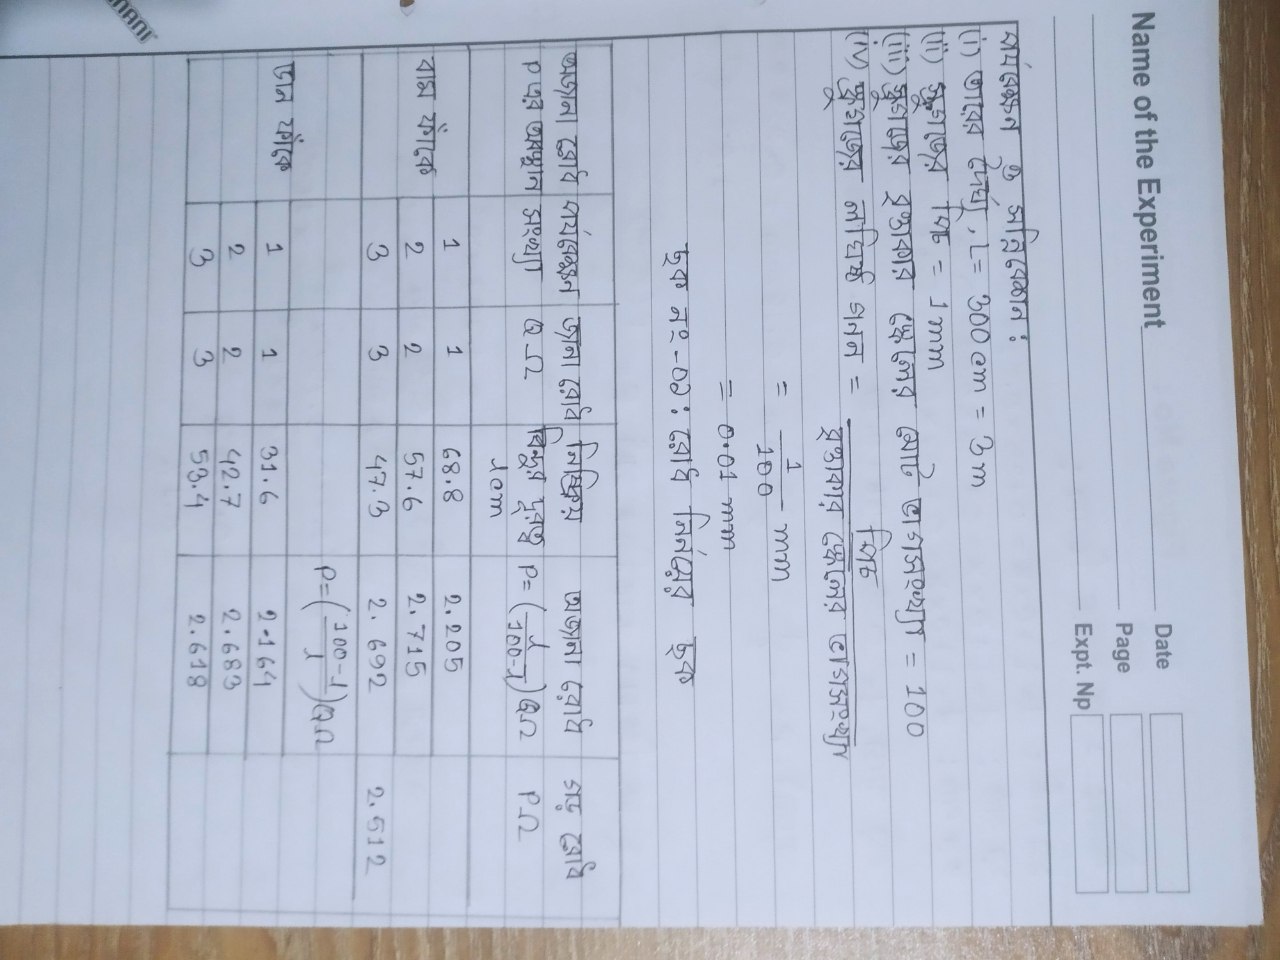 Name of the Experiment
Date
Page
Expt. Np
পর্যবেক্ষন ও সন্নিবেশন:
(i) তারের দৈর্ঘ্য, L = 300 cm = 3 m
(ii) স্ক্রুগজের পিচ = 1 mm
(iii) স্ক্রুগজের বৃত্তাকার স্কেলের মোট ভাগসংখ্যা = 100
(iv) স্ক্রুগজের লঘিষ্ঠ গনন = পিচ / বৃত্তাকার স্কেলের ভাগসংখ্যা
= 1/100 mm
= 0.01 mm
ছক নং-০১: রোধ নির্ণয়ের ছক
অজানা রোধ P এর অবস্থান | পর্যবেক্ষন সংখ্যা | জানা রোধ Q Ω | নিষ্ক্রিয় বিন্দুর দূরত্ব l cm | অজানা রোধ P = (l/100-l) Q Ω | গড় রোধ P Ω
বাম ফাঁকে | 1 | 1 | 68.8 | 2.205
2 | 2 | 57.6 | 2.715
3 | 3 | 47.3 | 2.692 | 2.512
P = (100-l/l) Q Ω
ডান ফাঁকে | 1 | 1 | 31.6 | 2.164
2 | 2 | 42.7 | 2.683
3 | 3 | 53.4 | 2.618